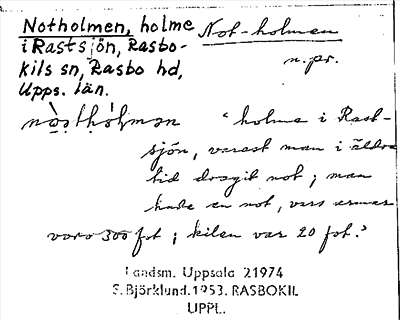 Notholmen, holme
i Rastsjön, Rasbo-
kils sn, Rasbo hd,
Upps. län.
Not-holmen
n.pr.
"holme i Rast-
sjön, varest man i äldre
tid dragit not; man
hade en not, vars armar
voro 300 fot; kilen var 20 fot."
Landsm. Uppsala 21974
S. Björklund. 1953. RASBOKIL
UPPL.